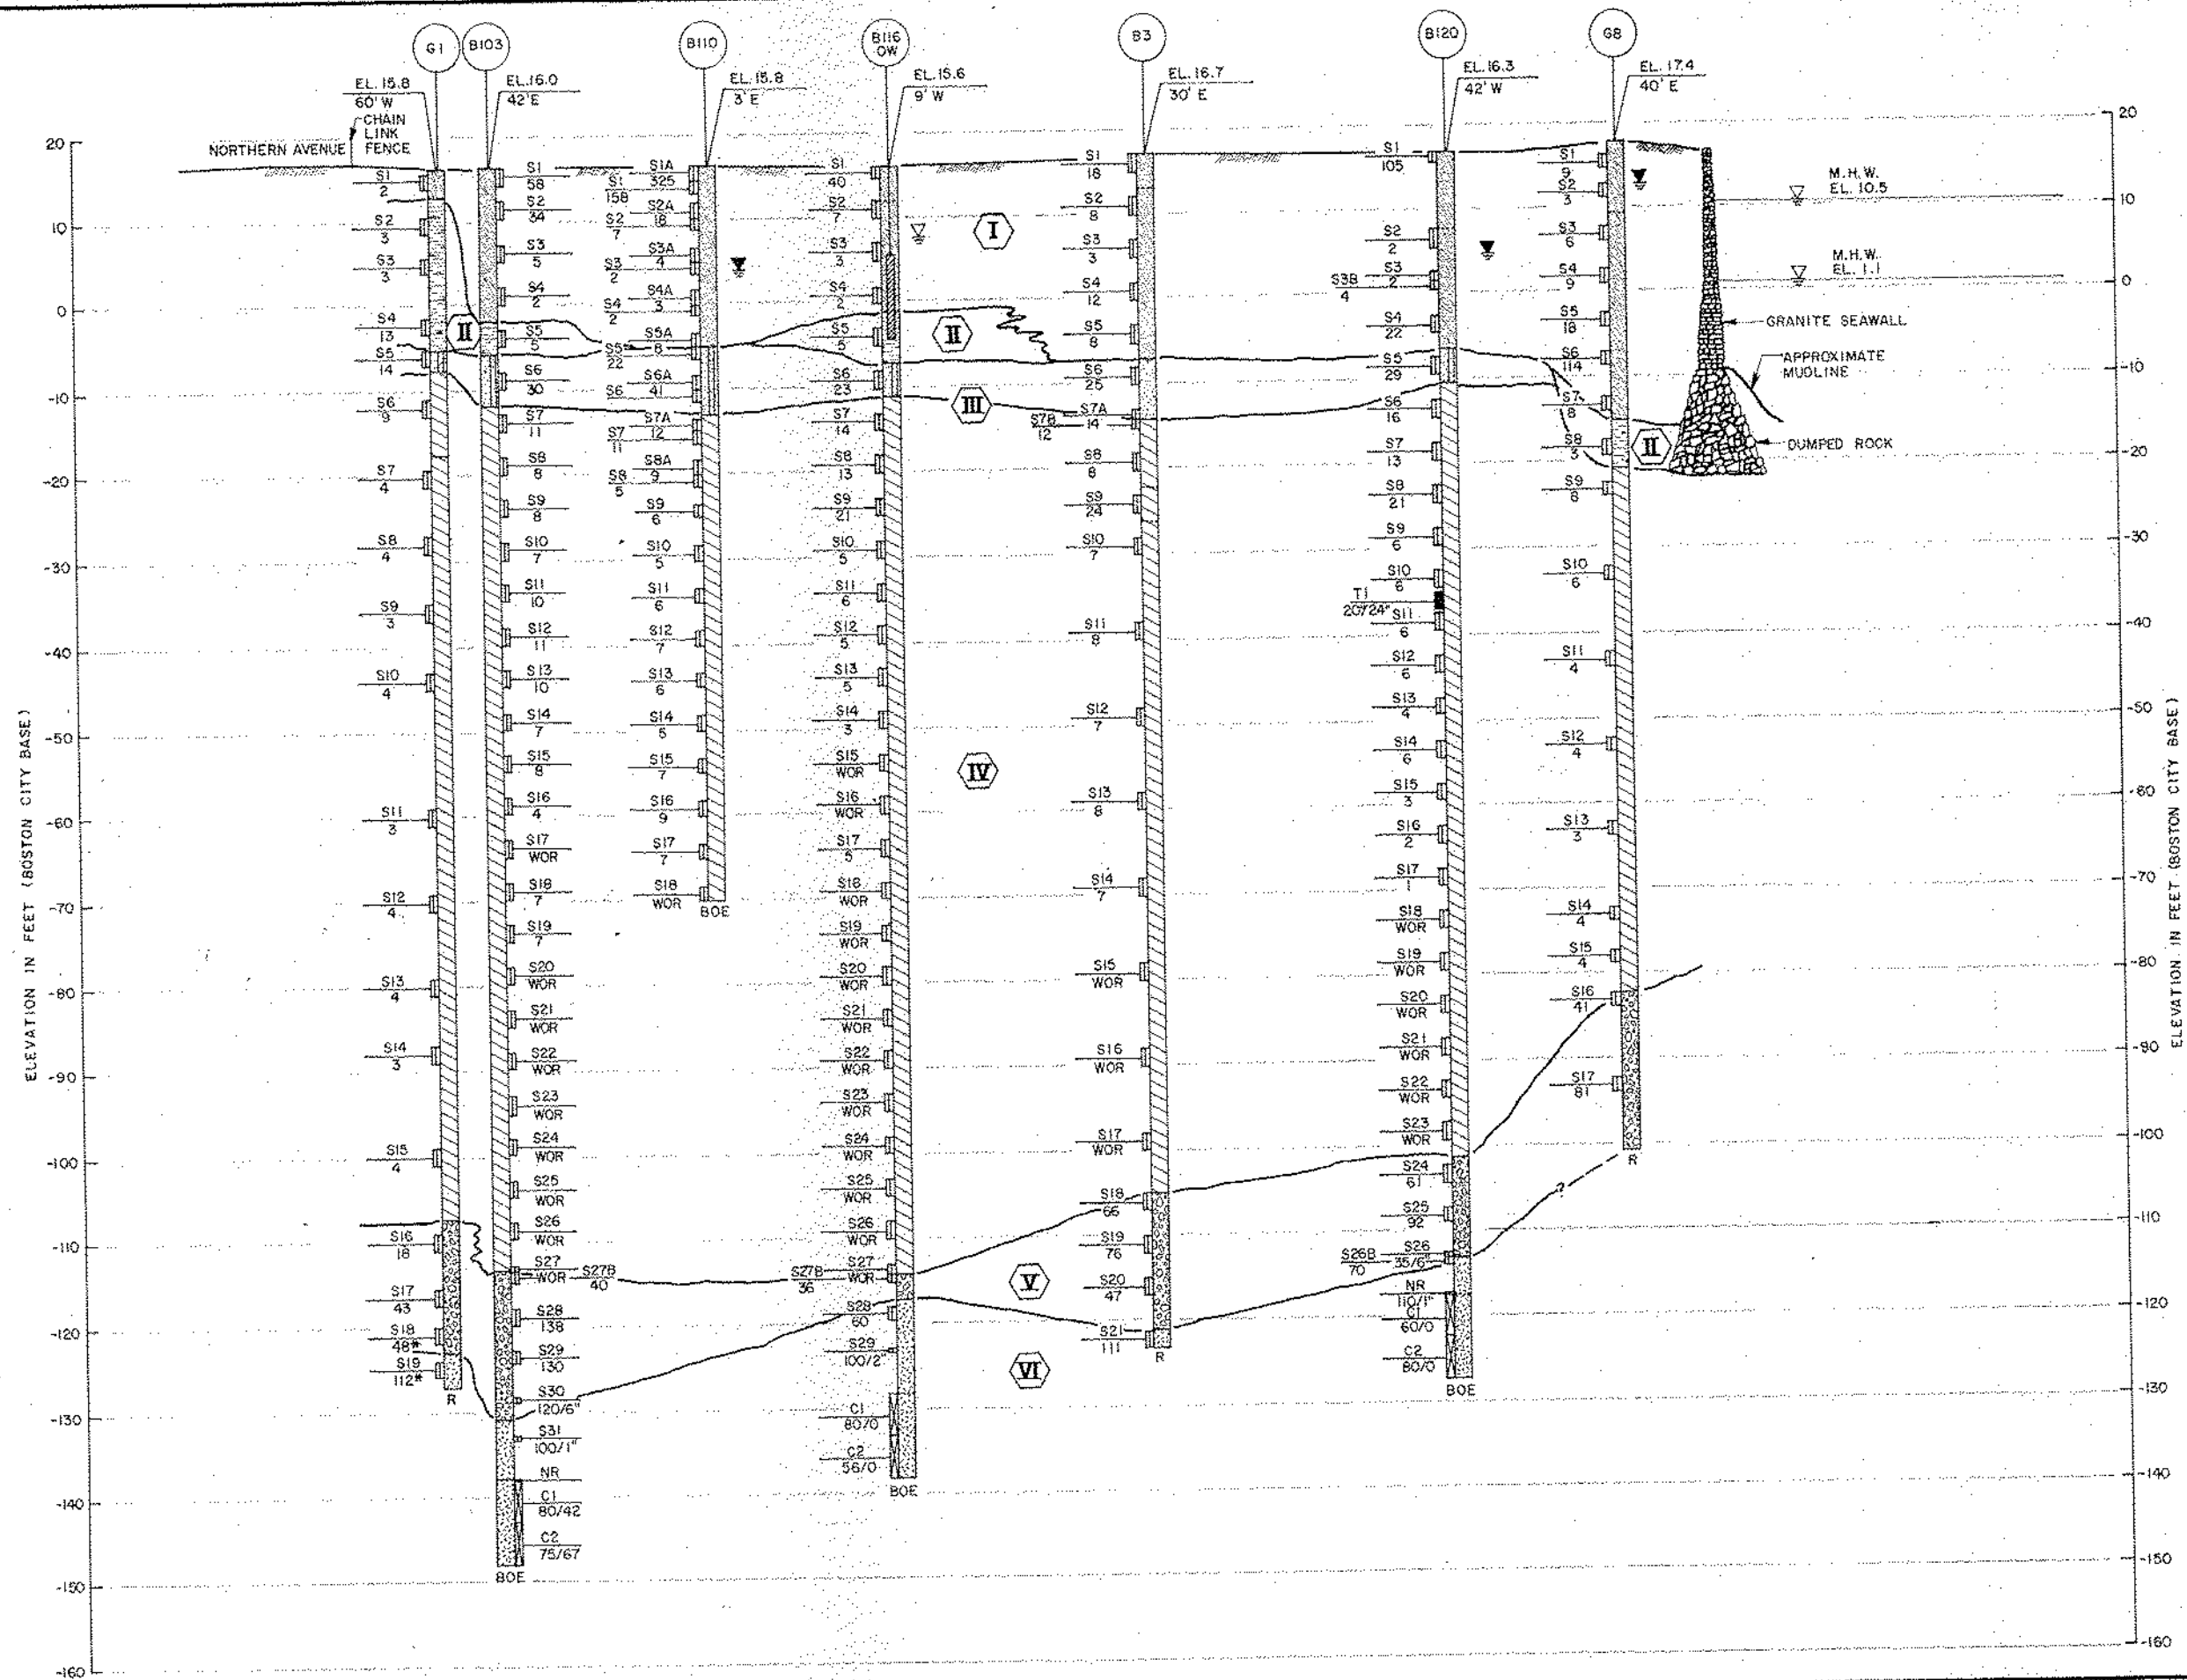 G1
B103
B110
B116
OW
B3
B120
G8
EL. 15.8
60' W
EL. 16.0
42' E
EL. 15.8
3' E
EL. 15.6
9' W
EL. 16.7
30' E
EL. 16.3
42' W
EL. 17.4
40' E
NORTHERN AVENUE
CHAIN
LINK
FENCE
M.H.W.
EL. 10.5
M.H.W.
EL. 1.1
GRANITE SEAWALL
APPROXIMATE
MUDLINE
DUMPED ROCK
ELEVATION IN FEET (BOSTON CITY BASE)
20
10
0
-10
-20
-30
-40
-50
-60
-70
-80
-90
-100
-110
-120
-130
-140
-150
-160
S1
2
S2
3
S3
3
S4
13
S5
14
S6
9
S7
4
S8
4
S9
3
S10
4
S11
3
S12
4
S13
4
S14
3
S15
4
S16
18
S17
43
S18
48*
S19
112*
R
S1
58
S2
34
S3
5
S4
2
S5
5
S6
30
S7
11
S8
8
S9
8
S10
7
S11
10
S12
11
S13
10
S14
7
S15
8
S16
4
S17
WOR
S18
7
S19
7
S20
WOR
S21
WOR
S22
WOR
S23
WOR
S24
WOR
S25
WOR
S26
WOR
S27
WOR
S27B
40
S28
138
S29
130
S30
120/6"
S31
100/1"
NR
C1
80/42
C2
75/67
BOE
S1A
325
S1
158
S2A
18
S2
7
S3A
4
S3
2
S4A
3
S4
2
S5A
8
S5
22
S6A
41
S6
S7A
12
S7
11
S8A
9
S8
5
S9
6
S10
5
S11
6
S12
7
S13
6
S14
5
S15
7
S16
9
S17
7
S18
WOR
BOE
S1
40
S2
7
S3
3
S4
2
S5
5
S6
23
S7
14
S8
13
S9
21
S10
5
S11
6
S12
5
S13
5
S14
3
S15
WOR
S16
WOR
S17
5
S18
WOR
S19
WOR
S20
WOR
S21
WOR
S22
WOR
S23
WOR
S24
WOR
S25
WOR
S26
WOR
S27
WOR
S27B
36
S28
60
S29
100/2"
C1
80/0
C2
56/0
BOE
I
II
II
III
IV
V
VI
II
S1
18
S2
8
S3
3
S4
12
S5
8
S6
25
S7A
14
S7B
12
S8
8
S9
24
S10
7
S11
8
S12
7
S13
8
S14
7
S15
WOR
S16
WOR
S17
WOR
S18
66
S19
76
S20
47
S21
111
R
S1
105
S2
2
S3
2
S3B
4
S4
22
S5
29
S6
16
S7
13
S8
21
S9
6
S10
6
T1
20/24"
S11
6
S12
6
S13
4
S14
6
S15
3
S16
2
S17
1
S18
WOR
S19
WOR
S20
WOR
S21
WOR
S22
WOR
S23
WOR
S24
61
S25
92
S26
35/6"
S26B
70
NR
110/1"
C1
60/0
C2
80/0
BOE
S1
9
S2
3
S3
6
S4
9
S5
18
S6
114
S7
8
S8
3
S9
8
S10
6
S11
4
S12
4
S13
3
S14
4
S15
4
S16
41
S17
81
R
?
20
10
0
-10
-20
-30
-40
-50
-60
-70
-80
-90
-100
-110
-120
-130
-140
-150
-160
ELEVATION IN FEET (BOSTON CITY BASE)